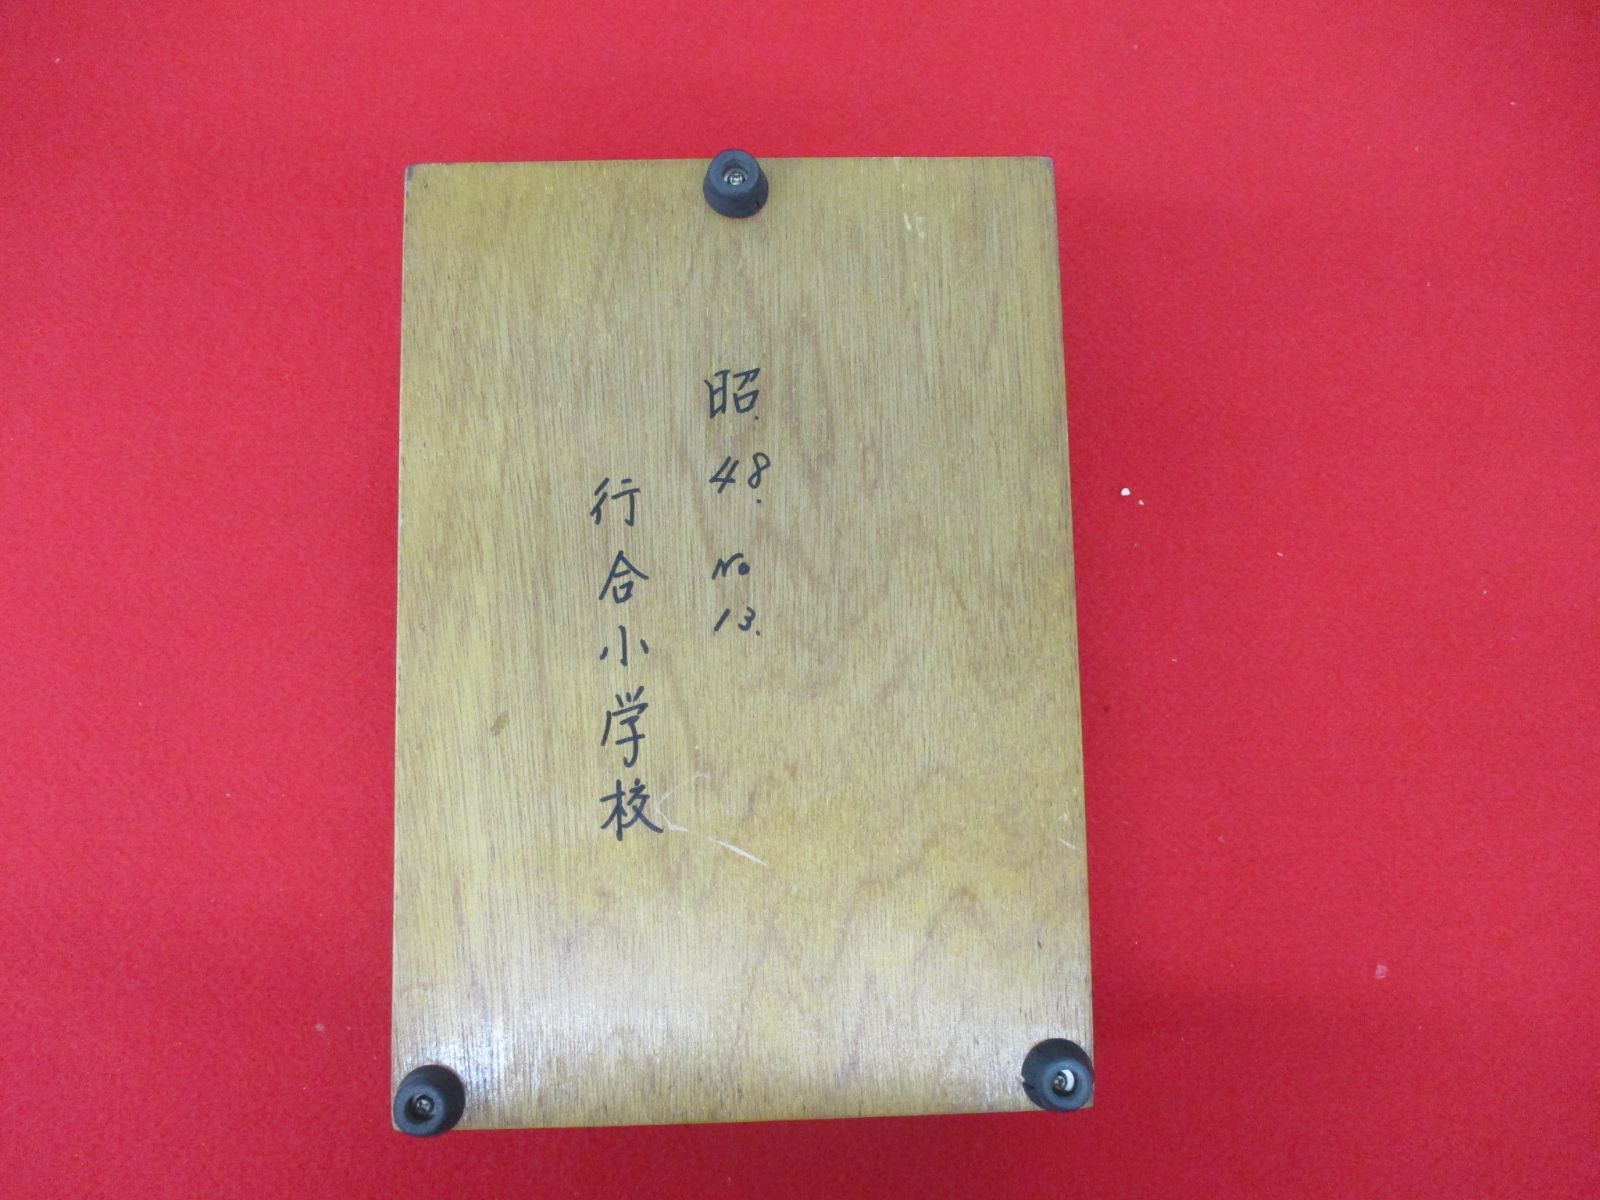 昭.48.No13.
行合小学校